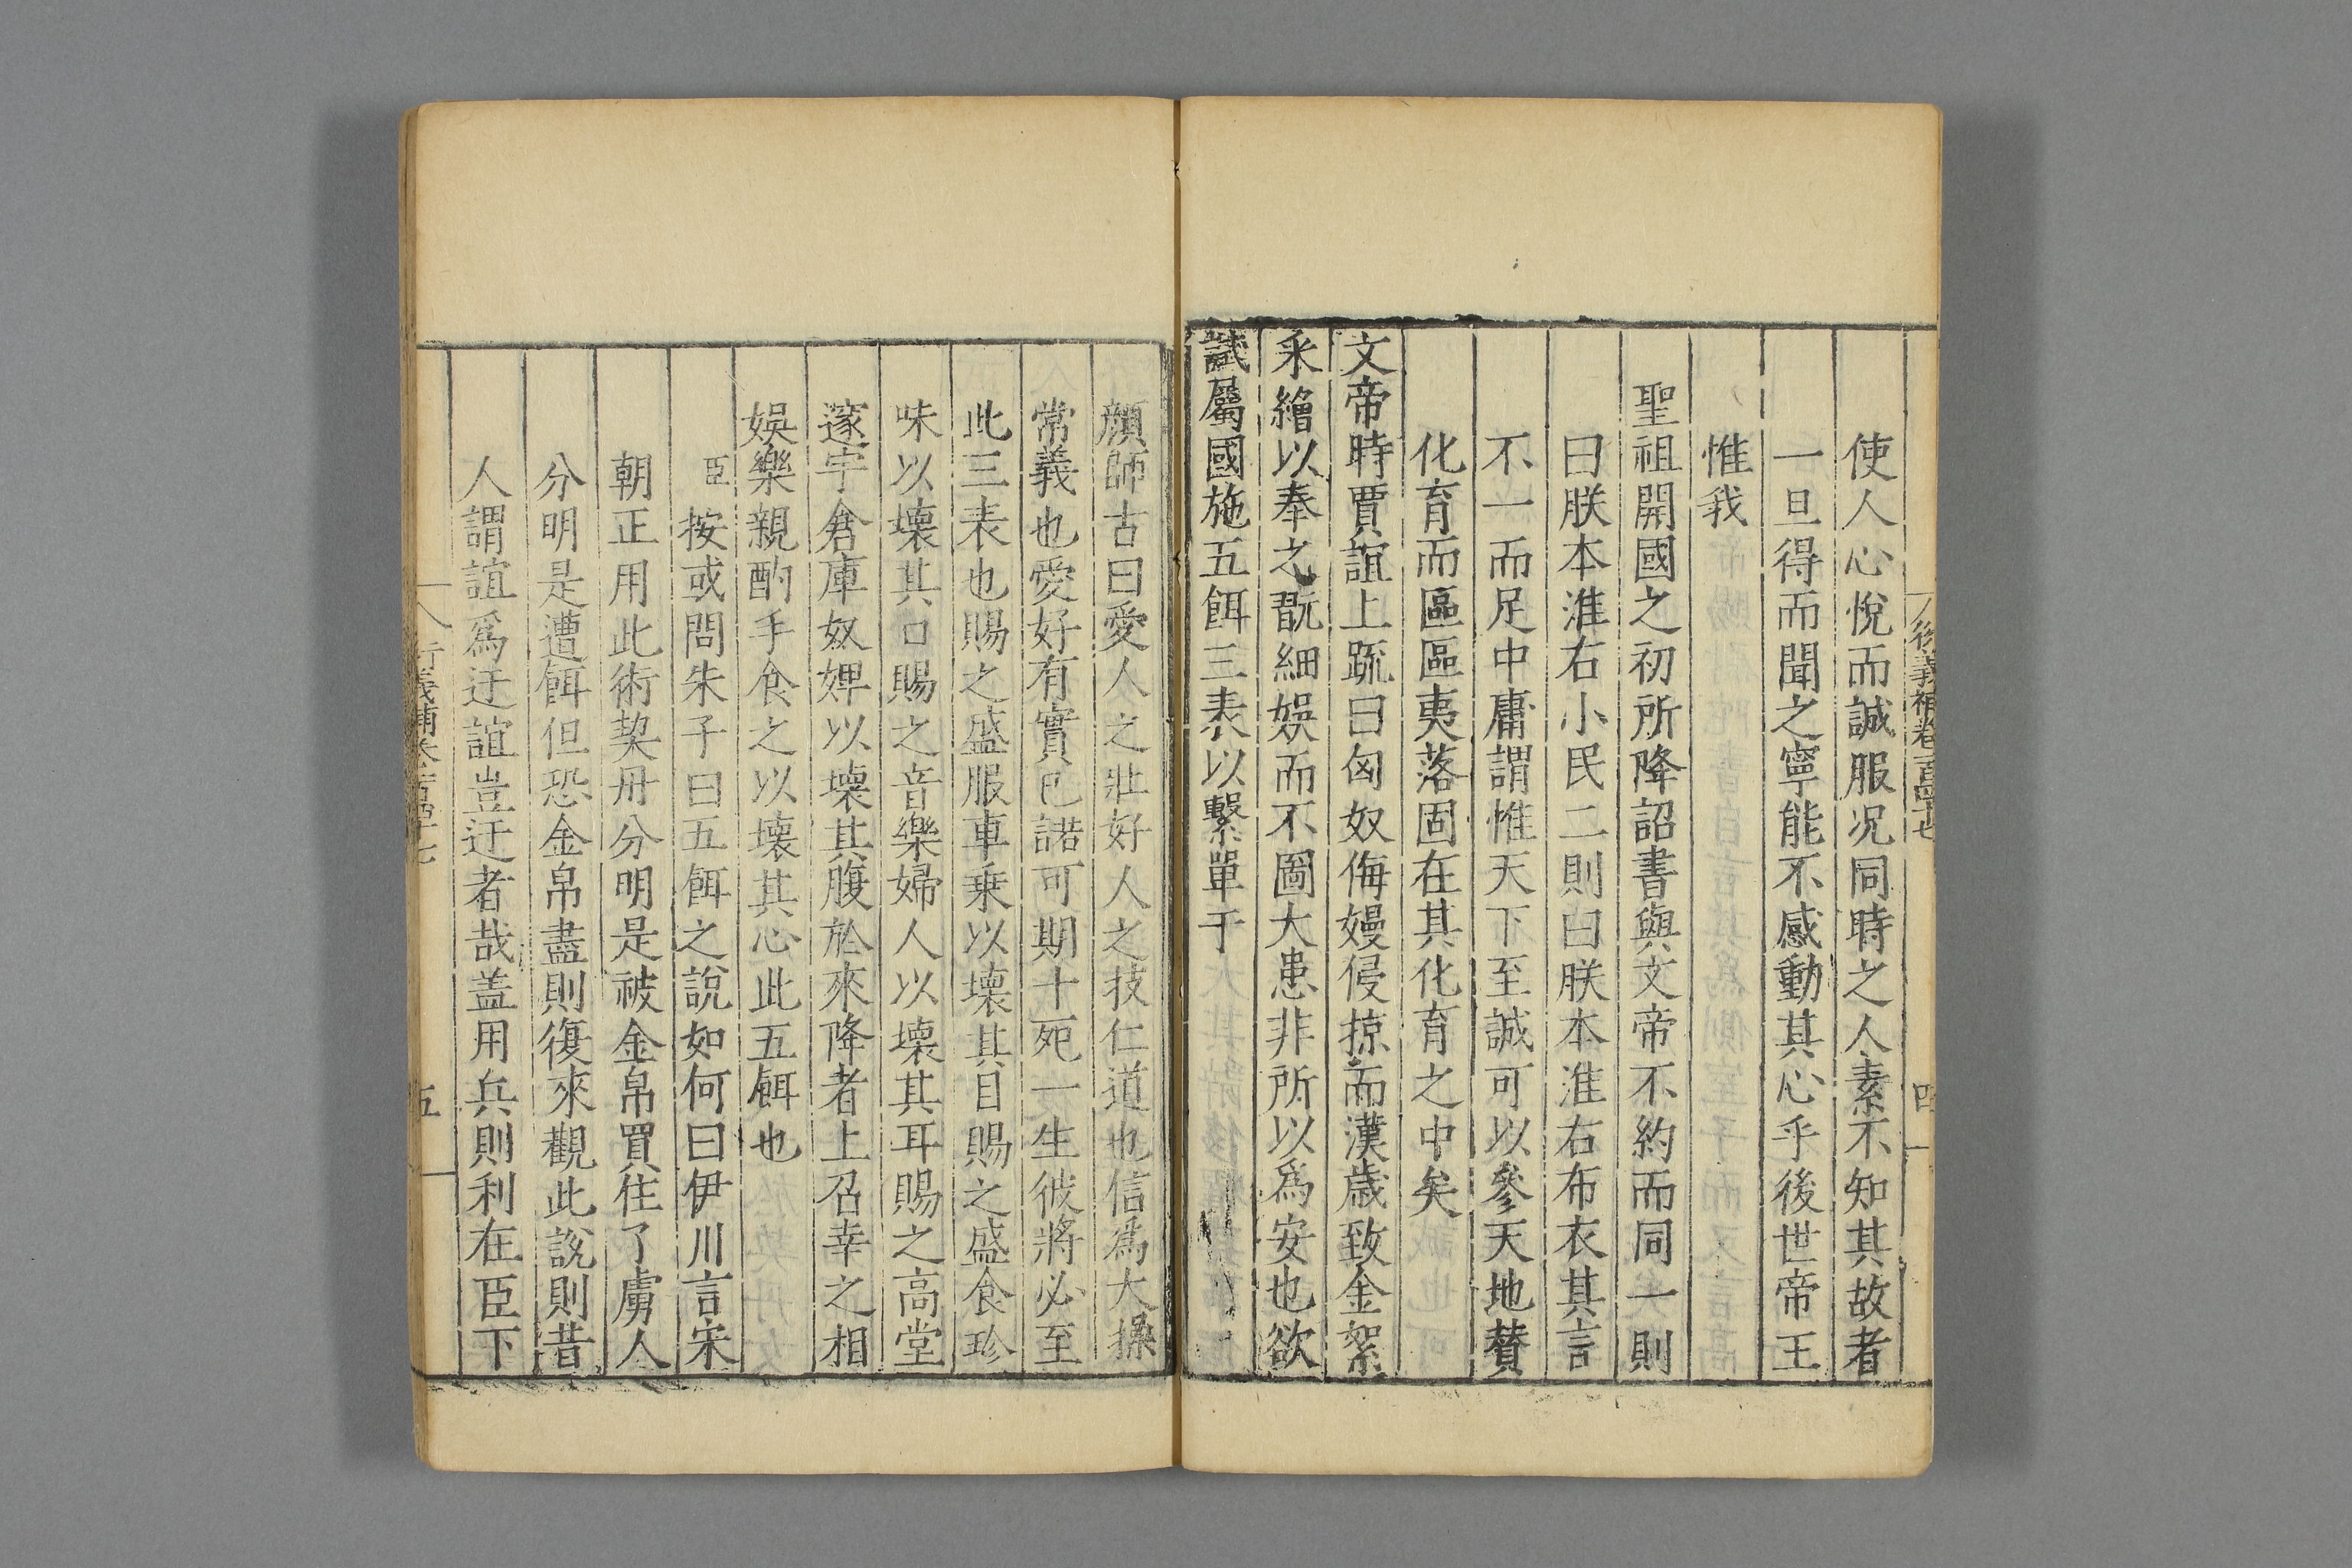 使人心悅而誠服况同時之人素不知其故者
一旦得而聞之寧能不感動其心乎後世帝王
惟我
聖祖開國之初所降詔書與文帝不約而同一則
曰朕本淮右小民二則曰朕本淮右布衣其言
不一而足中庸謂惟天下至誠可以參天地賛
化育而區區夷落固在其化育之中矣
文帝時賈誼上䟽曰匈奴侮嫚侵掠而漢歲致金絮
采繒以奉之翫細娛而不圖大患非所以爲安也欲
試屬國施五餌三表以繫單于
顔師古曰愛人之壯好人之技仁道也信爲大操
常義也愛好有實已諾可期十死一生彼將必至
此三表也賜之盛服車乗以壞其目賜之盛食珍
味以壞其口賜之音樂婦人以壞其耳賜之高堂
邃宇倉庫奴婢以壞其腹於來降者上召幸之相
娛樂親酌手食之以壞其心此五餌也
臣按或問朱子曰五餌之說如何曰伊川言宋
朝正用此術契丹分明是被金帛買住了虜人
分明是遭餌但恐金帛盡則復來觀此說則昔
人謂誼爲迂誼豈迂者哉盖用兵則利在臣下
五